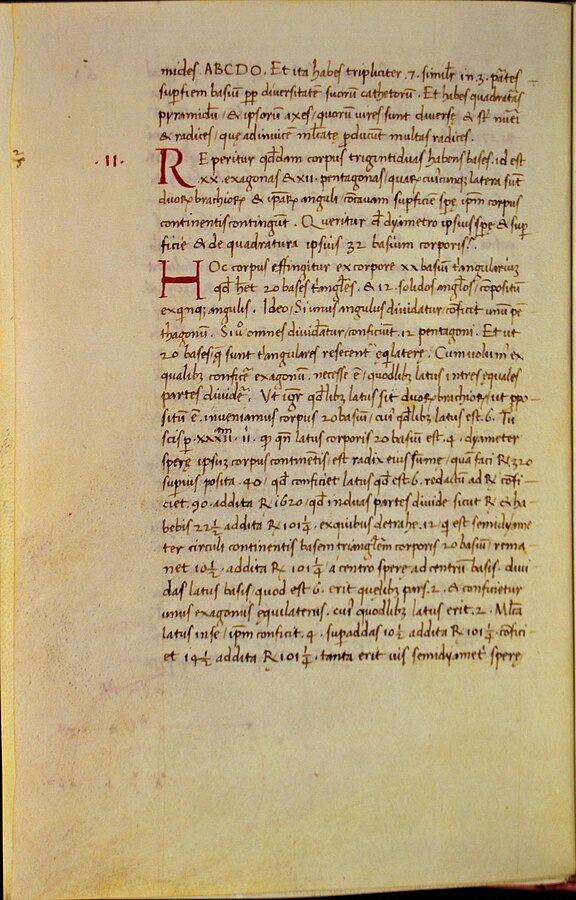 mides. ABCDO. Et ita habes tripliciter .7. simılr in .3. ptes
supfiem basiū pp diversitatē suorū cathetorū. Et habes quadratas
pyramidū / & ipsorū axes / quorū vires sunt diverse & st nueri
& radices / que adinuicē mlcate pducūt multas radices.
.II. REperitur qddam corpus triginti duas habens bases. id est
.xx. exagonas & XII. pentagonas / quaꝝ cuicunqꝫ latera sūt
duoꝝ brachioꝝ & ipaꝝ anguli cōcavam supficiē spe ipm corpus
continentis contingūt. Queritur d dyametro ipsius spe & sup
ficie & de quadratura ipsius 32 basium corporis.
HOc corpus effingitur ex corpore xx basiū triangulariuꝫ
qd het 20 bases triangles. & 12. solidos anglos / copositū
ex quinqꝫ angulis. Ideo / Si unus angulus dividatur / cōficit unū pe
thagonū. Si v° omnes dividātur / conficiūt .12 pentagoni. Et ut
20 bases / q sunt triangulares resecent eqlatere. Cum volum' ex
qualibꝫ conficē exagonū. necesse ē / quodlibꝫ latus in tres equales
partes dividē. Ut igr qdlibꝫ latus sit duoꝝ brachioꝝ / ut ppo
sitū ē. inveniamus corpus 20 basiū / cui qdlibꝫ latus est .6. Tu
scis p .xxxiii.am .ii. q qn latus corporis 20 basiū est .4. dyameter
spere ipsuꝫ corpus continētis / est radix eius sume / quā faci ℞ 320
supius posita .40 / qd conficiet latus qd est .6. redactū ad ℞ cōfi
ciet .90. addita ℞ 1620 / qd in duas partes divide sicut ℞ & ha
bebis 22½ addita ℞ 101¼. ex quibus detrahe .12. q est semidyame
ter circuli continentis basem trianglem corporis 20 basiū / rema
net 10½. addita ℞ 101¼ a centro spere ad centrū basis. divi
das latus basis / quod est .6. erit quelibꝫ pars .2. & conficietur
unus exagonus equilaterus. cui' quodlibꝫ latus erit .2. Mlca
latus in se / ipm conficit .4. sup addas 10½ addita ℞ 101¼. cōfici
et 14½ addita ℞ 101¼. tanta erit vis semidyametri spere